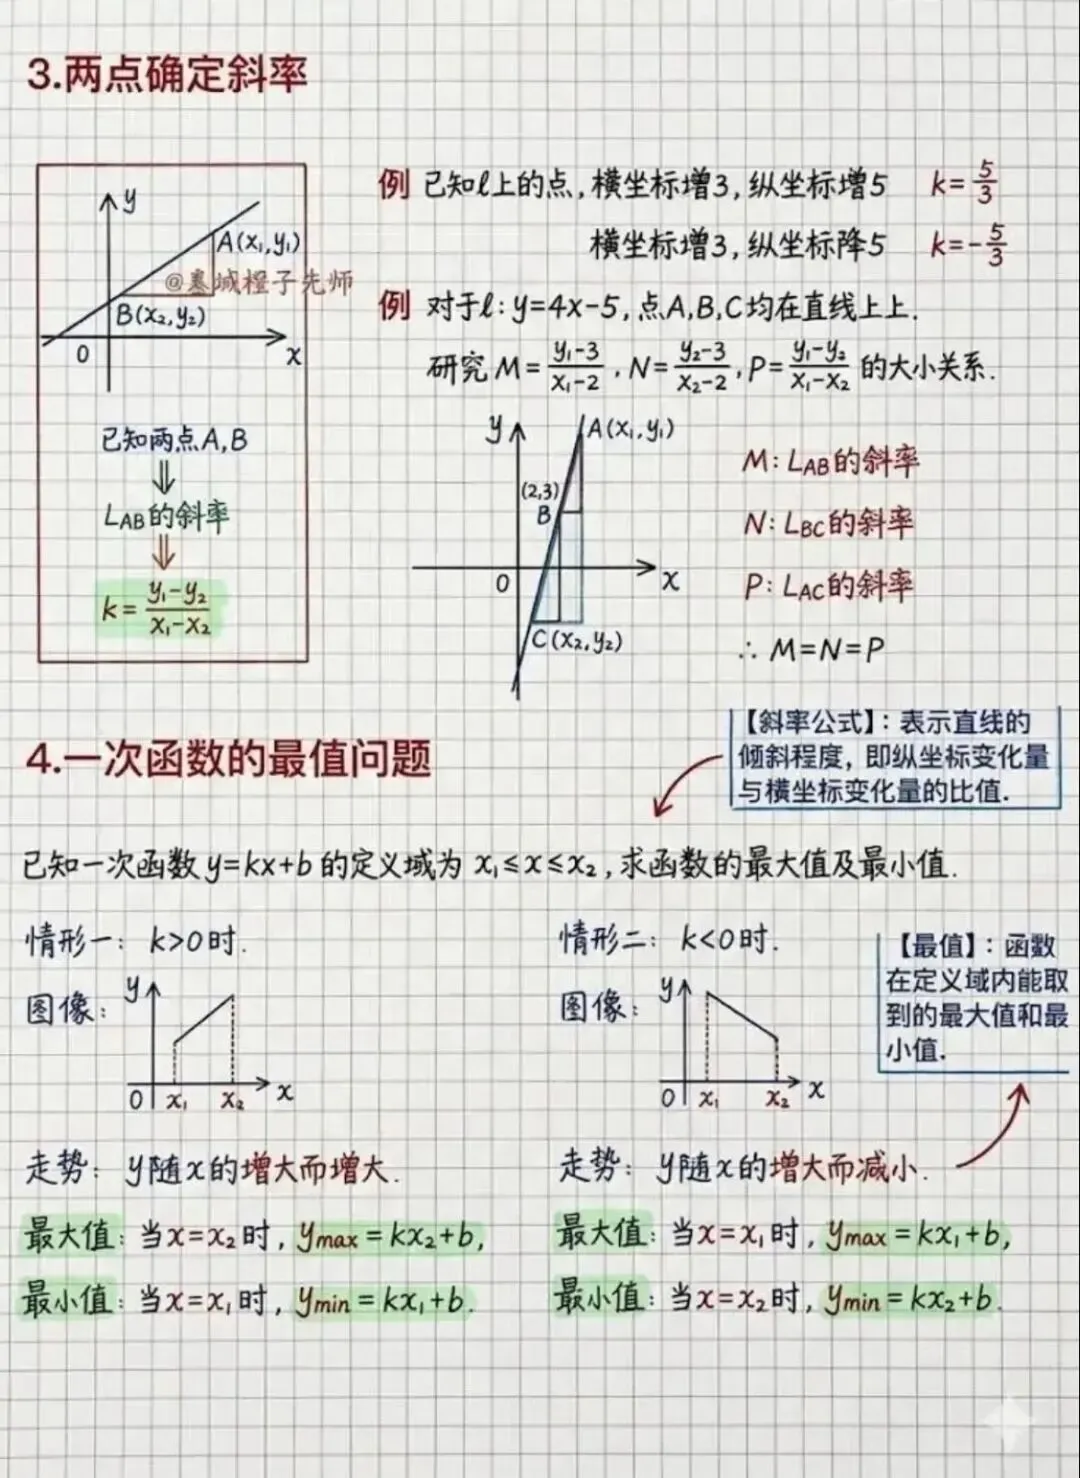 3.两点确定斜率
y
A(x₁,y₁)
@墓城橙子先师
B(x₂,y₂)
0
x
已知两点A,B
⇓
L_AB的斜率
⇓
k=\frac{y₁-y₂}{x₁-x₂}
例 已知ℓ上的点,横坐标增3,纵坐标增5 k=\frac{5}{3}
横坐标增3,纵坐标降5 k=-\frac{5}{3}
例 对于ℓ:y=4x-5,点A,B,C均在直线上上.
研究M=\frac{y₁-3}{x₁-2},N=\frac{y₂-3}{x₂-2},P=\frac{y₁-y₂}{x₁-x₂}的大小关系.
y
A(x₁,y₁)
(2,3)
B
0
x
C(x₂,y₂)
M:L_AB的斜率
N:L_BC的斜率
P:L_AC的斜率
∴ M=N=P
【斜率公式】:表示直线的
倾斜程度,即纵坐标变化量
与横坐标变化量的比值.
4.一次函数的最值问题
已知一次函数y=kx+b的定义域为 x₁≤x≤x₂,求函数的最大值及最小值.
情形一: k>0时.
图像:
y
0
x₁
x₂
x
走势: y随x的增大而增大.
最大值:当x=x₂时,y_max=kx₂+b,
最小值:当x=x₁时,y_min=kx₁+b.
情形二: k<0时.
图像:
y
0
x₁
x₂
x
【最值】:函数
在定义域内能取
到的最大值和最
小值.
走势: y随x的增大而减小.
最大值:当x=x₁时,y_max=kx₁+b,
最小值:当x=x₂时,y_min=kx₂+b.